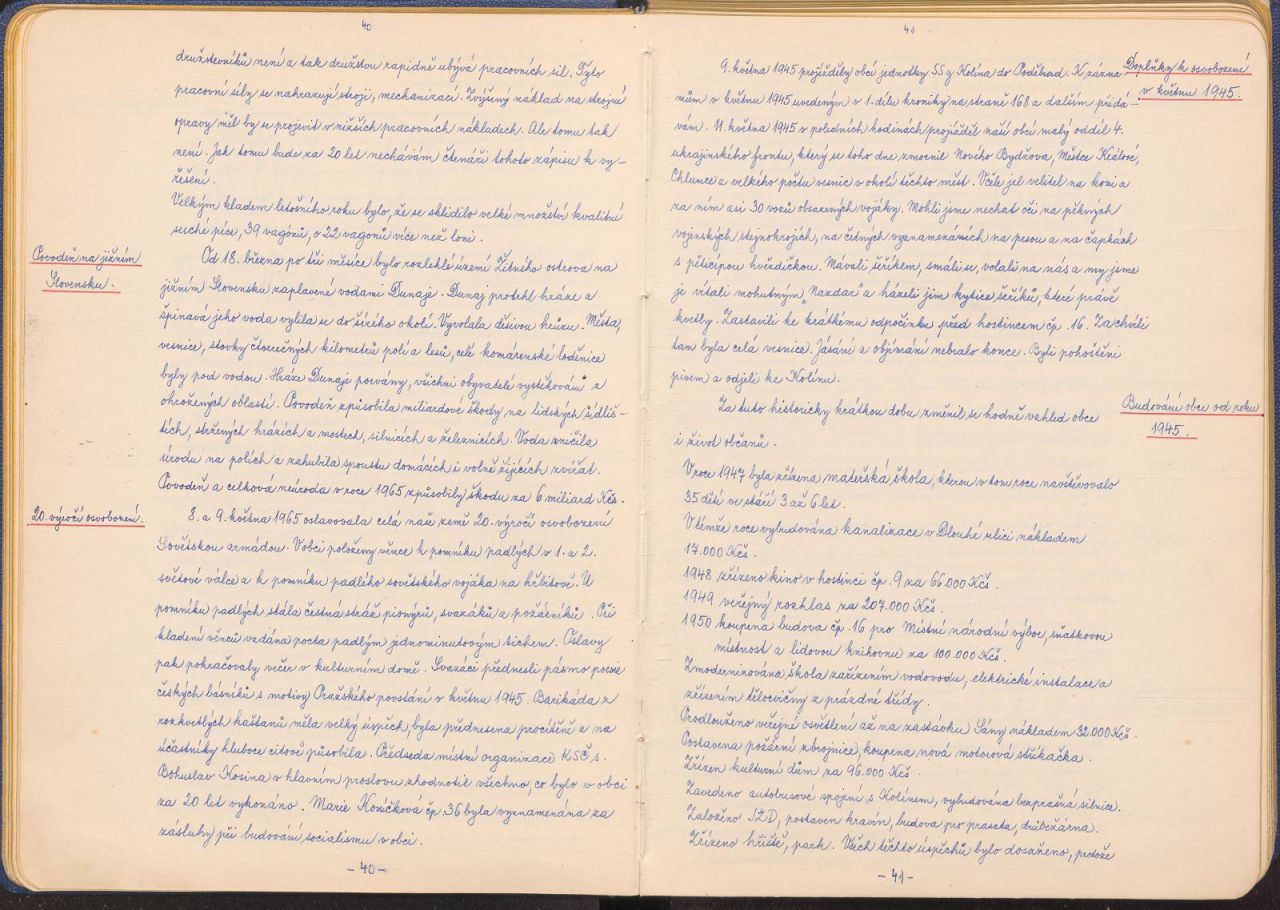 40
družstevníků není a tak družstvu rapidně ubývá pracovních sil. Tyto
pracovní síly se nahrazují stroji, mechanizací. Zvýšený náklad na strojní
opravy měl by se projevit v nižších pracovních nákladech. Ale tomu tak
není. Jak tomu bude za 20 let nechávám čtenáři tohoto zápisu k vy-
řešení.
Velkým kladem letošního roku bylo, že se sklidilo velké množství kvalitní
suché píce, 39 vagónů, o 22 vagonů více než loni.
Povodeň na jižním
Slovensku.
Od 18. března po tři měsíce bylo rozlehlé území Žitného ostrova na
jižním Slovensku zaplavené vodami Dunaje. Dunaj protrhl hráze a
špinavá jeho voda vylila se do širého okolí. Vyvolala děsivou hrůzu. Města,
vesnice, stovky čtverečných kilometrů polí a lesů, celé komárenské loděnice
byly pod vodou. Hráze Dunaje porvány, všichni obyvatelé vystěhováni z
ohrožených oblastí. Povodeň způsobila miliardové škody na lidských sídliš-
tích, stržených hrázích a mostech, silnicích a železnicích. Voda zničila
úrodu na polích a zahubila spoustu domácích i volně žijících zvířat.
Povodeň a celková neúroda v roce 1965 způsobily škodu za 6 miliard Kčs.
20. výročí osvobození.
8. a 9. května 1965 oslavovala celá naše země 20. výročí osvobození
Sovětskou armádou. V obci položeny věnce k pomníku padlých v 1. a 2.
světové válce a k pomníku padlého sovětského vojáka na hřbitově. U
pomníku padlých stála čestná stráž pionýrů, svazáků a požárníků. Při
kladení věnců vzdána pocta padlým jednominutovým tichem. Oslavy
pak pokračovaly večer v kulturním domě. Svazáci přednesli pásmo poesie
českých básníků s motivy Pražského povstání v květnu 1945. Barikáda z
rozkvetlých kaštanů měla velký úspěch, byla přednesena procítěně a na
účastníky hluboce citově působila. Předseda místní organizace KSČ s.
Bohuslav Kosina v hlavním proslovu zhodnotil všechno co bylo v obci
za 20 let vykonáno. Marie Koníčková čp. 36 byla vyznamenána za
zásluhy při budování socialismu v obci.
- 40 -
41
Doplňky k osvobození
v květnu 1945.
9. května 1945 projížděly obcí jednotky SS z Kolína do Poděbrad. K zázna-
mům v květnu 1945 uvedeným v 1. dílu kroniky na straně 168 a dalším přidá-
vám. 11. května 1945 v poledních hodinách projížděl naší obcí malý oddíl 4.
ukrajinského frontu, který se toho dne zmocnil Nového Bydžova, Městce Králové,
Chlumce a velkého počtu vesnic v okolí těchto měst. V čele jel velitel na koni a
za ním asi 30 vozů obsazených vojáky. Mohli jsme nechat oči na pěkných
vojinských stejnokrojích, na četných vyznamenáních na prsou a na čapkách
s pěticípou hvězdičkou. Mávali šeříkem, smáli se, volali na nás a my jsme
je vítali mohutným „Nazdar" a házeli jim kytice šeříků, které právě
kvetly. Zastavili ke krátkému odpočinku před hostincem čp. 16. Za chvíli
tam byla celá vesnice. Jásání a objímání nebralo konce. Byli pohoštěni
pivem a odjeli ke Kolínu.
Budování obce od roku
1945.
Za tuto historicky krátkou dobu změnil se hodně vzhled obce
i život občanů.
V roce 1947 byla zřízena mateřská škola, kterou v tom roce navštěvovalo
35 dětí ve stáří 3 až 6 let.
V témže roce vybudována kanalizace v Dlouhé ulici nákladem
17.000 Kčs.
1948 zřízeno kino v hostinci čp. 9 za 66.000 Kčs.
1949 veřejný rozhlas za 207.000 Kčs.
1950 koupena budova čp. 16 pro Místní národní výbor, sňatkovou
místnost a lidovou knihovnu za 100.000 Kčs.
Zmodernizována škola zařízením vodovodu, elektrické instalace a
zřízením tělocvičny z prázdné třídy.
Prodlouženo veřejné osvětlení až na zastávku Sány nákladem 32.000 Kčs.
Postavena požární zbrojnice, koupena nová motorová stříkačka.
Zřízen kulturní dům za 96.000 Kčs.
Zavedeno autobusové spojení s Kolínem, vybudována bezprašná silnice.
Založeno JZD, postaven kravín, budova pro prasata, drůbežárna.
Zřízeno hřiště, park. Všech těchto úspěchů bylo dosaženo, protože
- 41 -